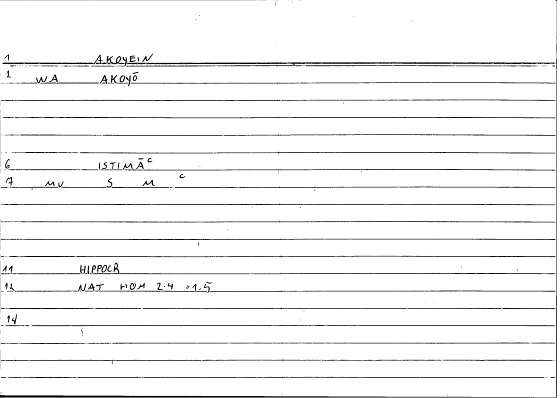 1 AKOYEIN
1 WA AKOYŌ
6 ISTIMĀ c
7 MV S M c
11 HIPPOCR
12 NAT HOM 2.4 01.5
14